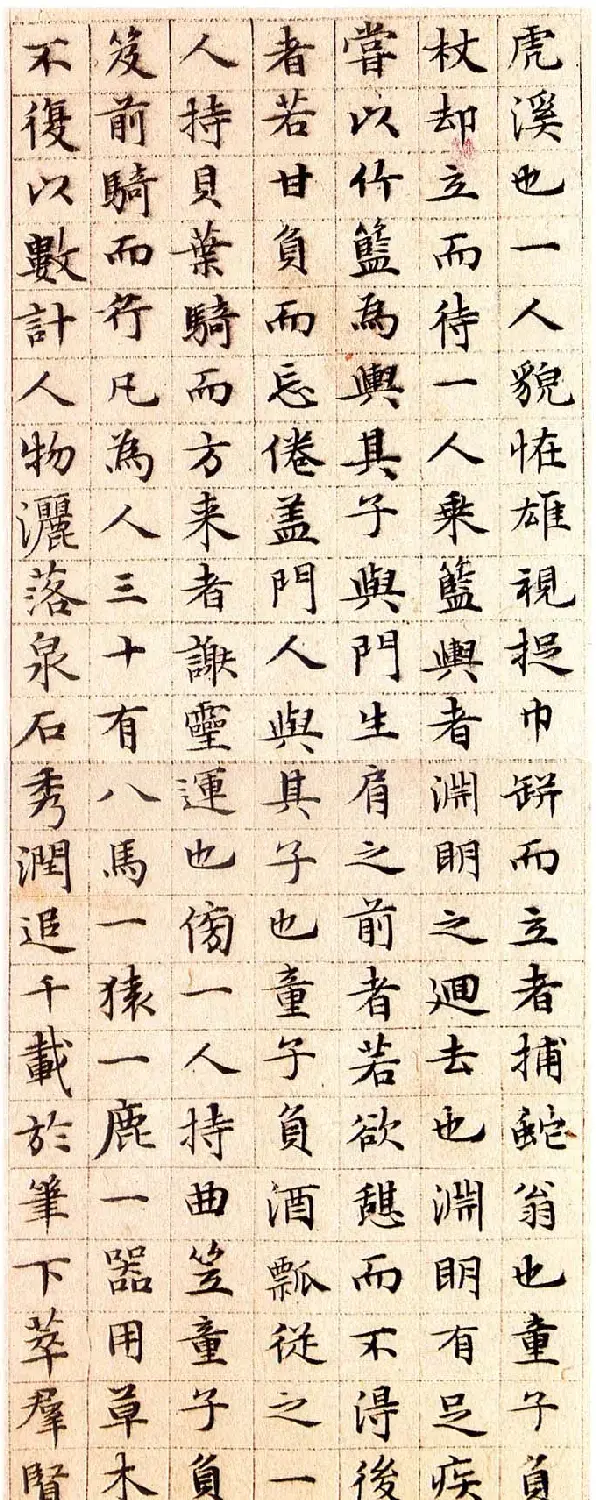 虎溪也一人貌怪雄視捉巾缾而立者捕蛇翁也童子負
杖却立而待一人乘籃輿者淵明之迴去也淵明有足疾
嘗以竹籃為輿其子與門生肩之前者若欲憇而不得後
者若甘負而忘倦盖門人與其子也童子負酒瓢従之一
人持貝葉騎而方来者謝靈運也傍一人持曲笠童子負
笈前騎而行凡為人三十有八馬一猿一鹿一器用草木
不復以數計人物灑落泉石秀潤追千載於筆下萃羣賢